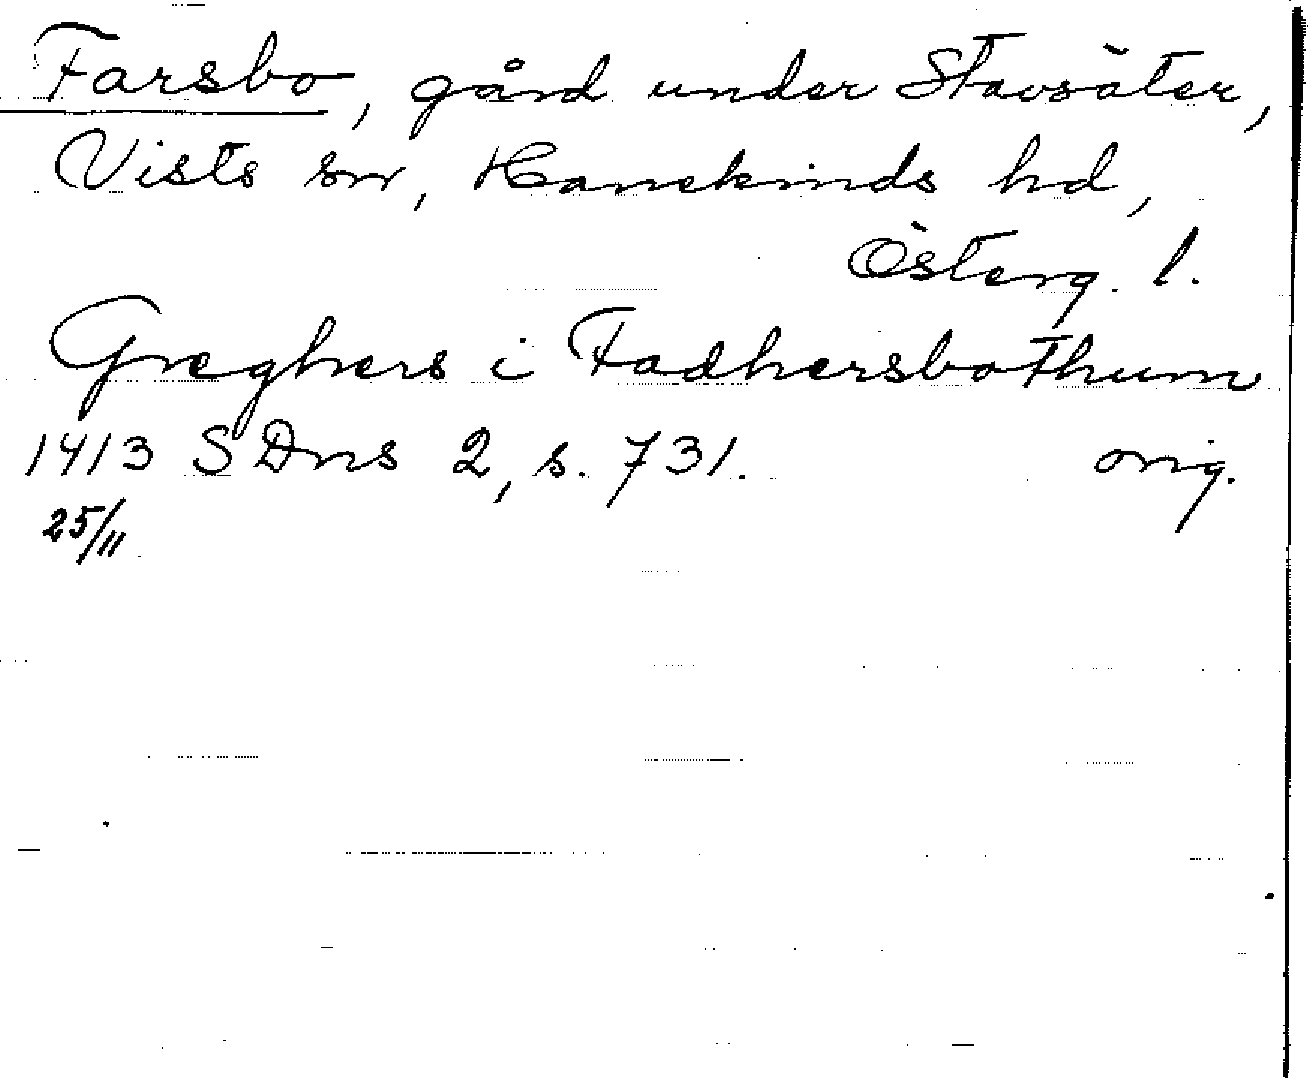 Farsbo, gård under Stavsäter,
Vists sn, Hanekinds hd,
Österg. l.
Græghers i Fadhersbothum
1413 SDns 2, s. 731. orig.
25/11